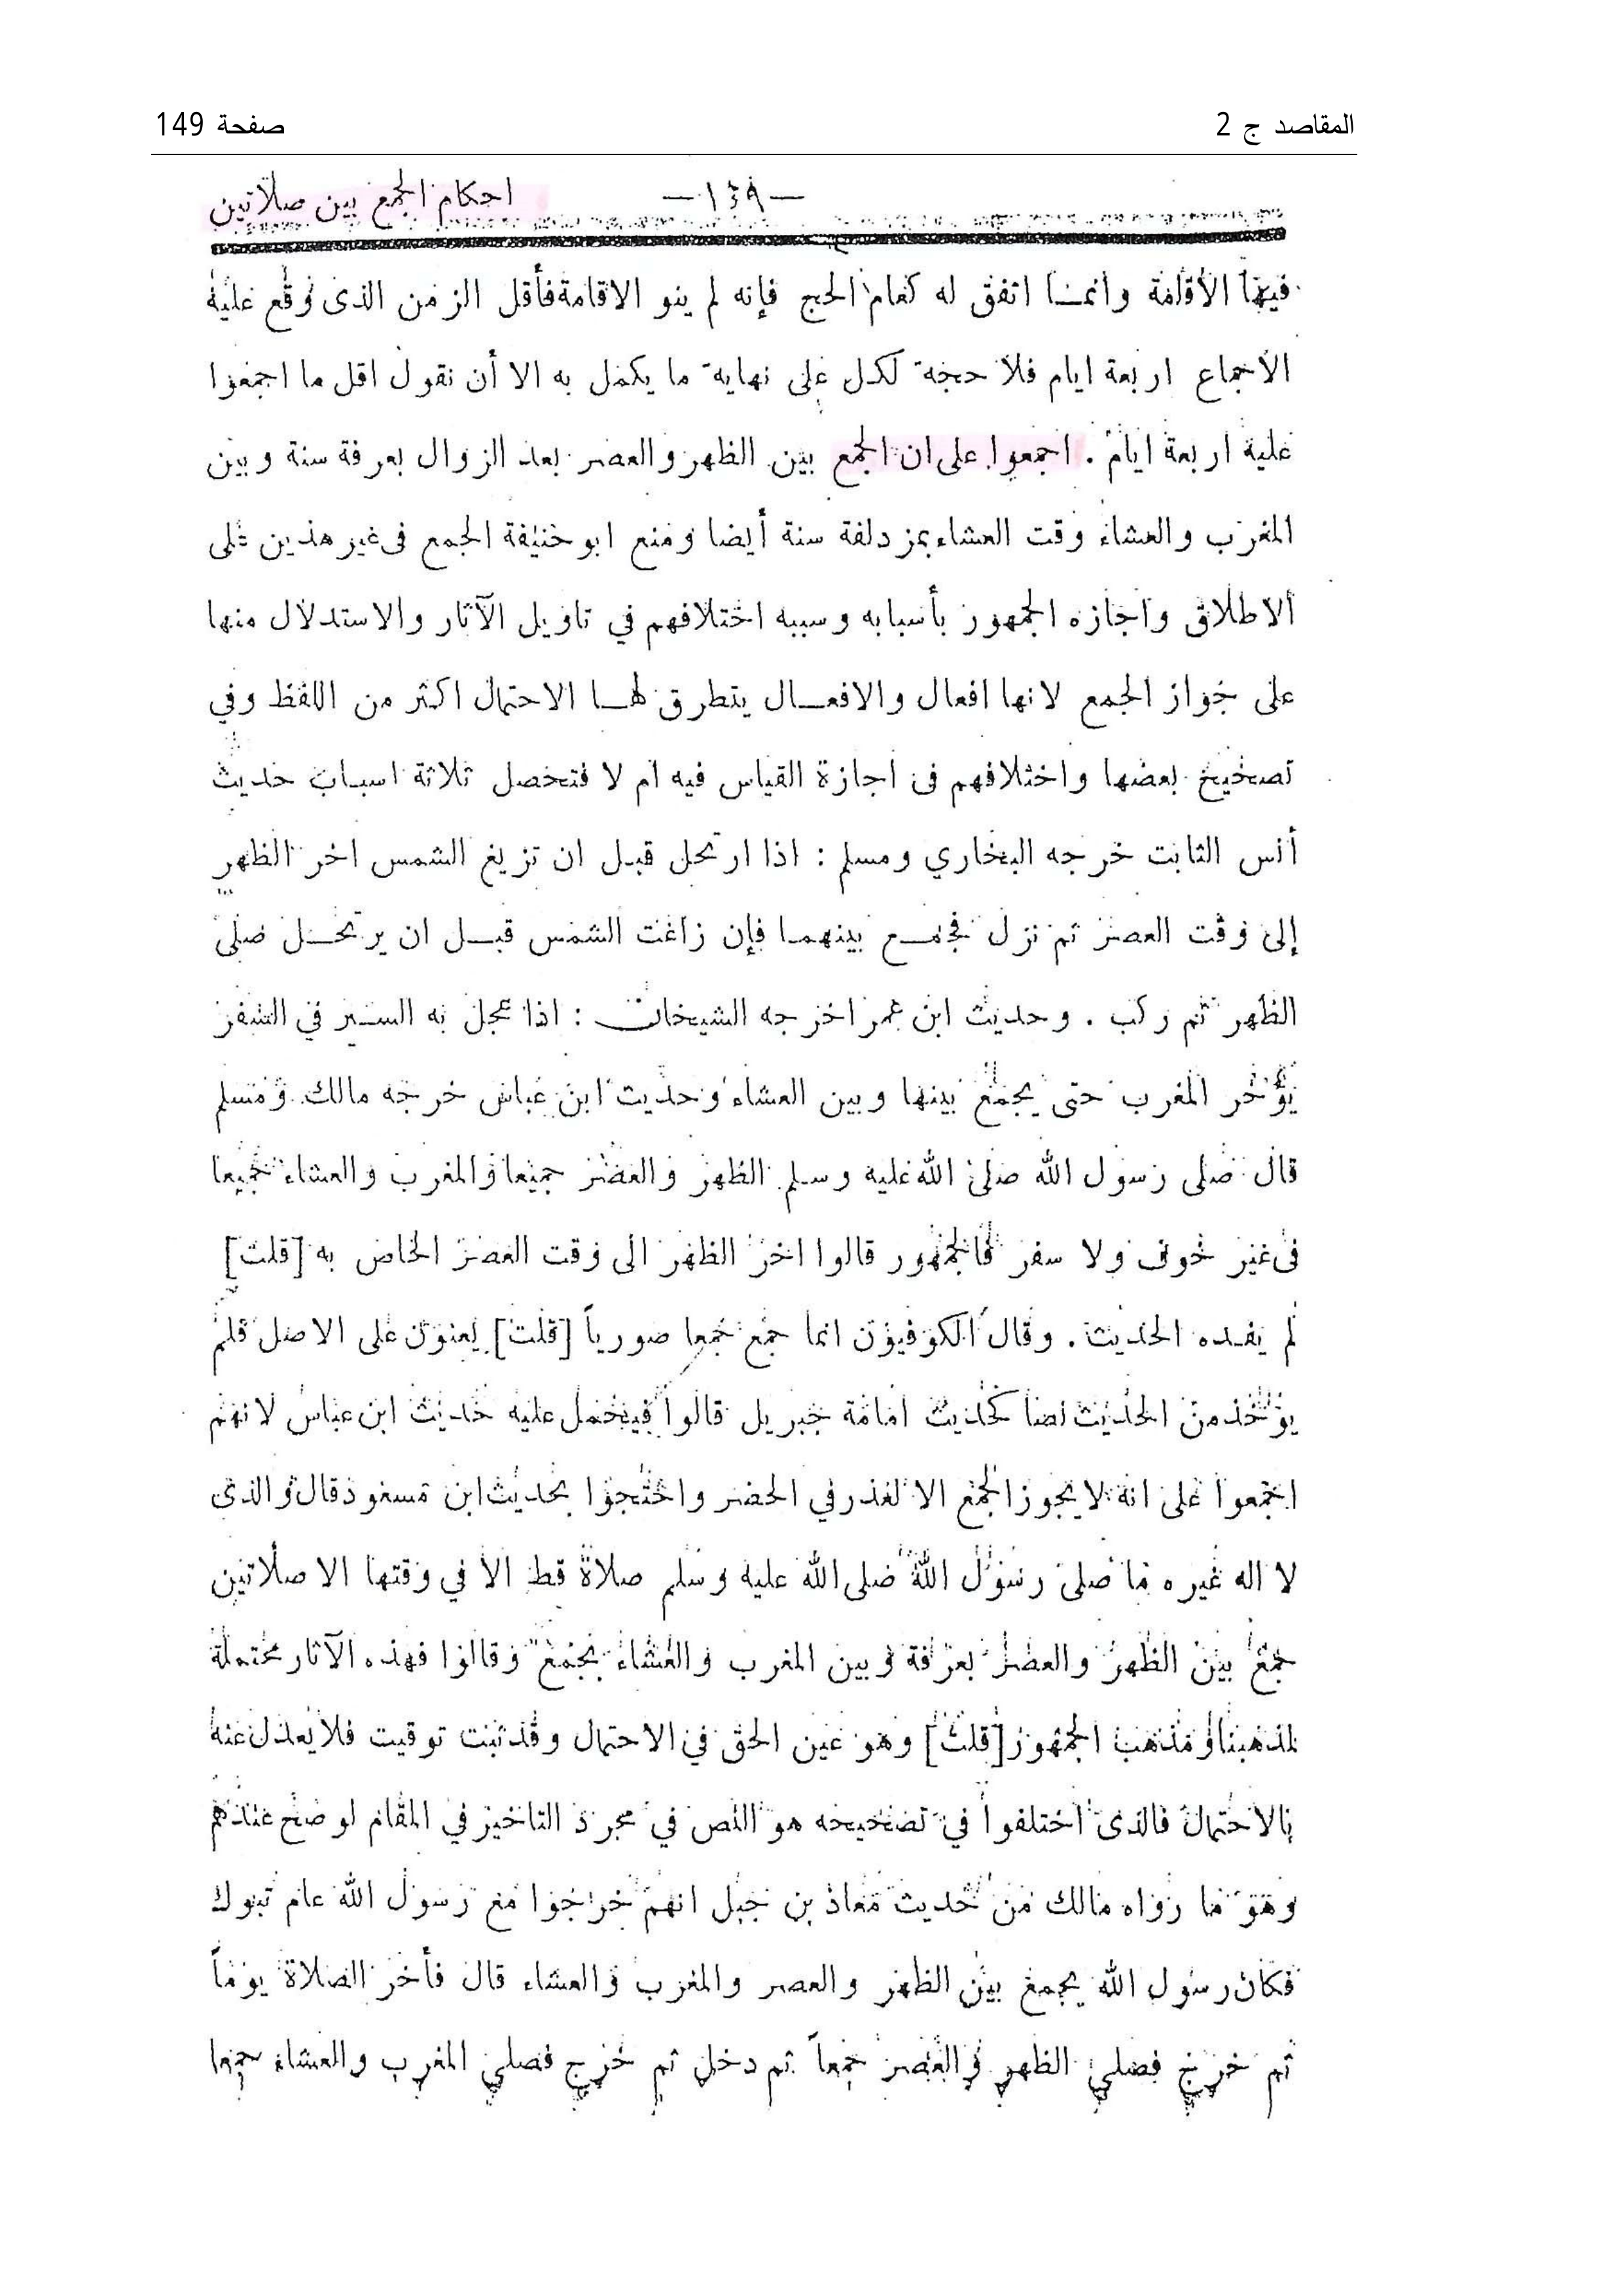 المقاصد ج 2
صفحة 149
-١٤٩-
احكام الجمع بين صلاتين
فيها الأقامة وانما اتفق له كعام الحج فإنه لم ينو الاقامة فأقل الزمن الذى وقع عليه
الاجماع اربعة ايام فلا حجة لكل على نهاية ما يكمل به الا أن نقول اقل ما اجمعوا
عليه اربعة ايام . اجمعوا على ان الجمع بين الظهر والعصر بعد الزوال بعرفة سنة وبين
المغرب والعشاء وقت العشاء بمزدلفة سنة أيضا ومنع ابو حنيفة الجمع فى غير هذين على
الاطلاق واجازه الجمهور بأسبابه وسببه اختلافهم في تاويل الآثار والاستدلال منها
على جواز الجمع لانها افعال والافعال يتطرق لها الاحتمال اكثر من اللفظ وفي
تصحيح بعضها واختلافهم فى اجازة القياس فيه ام لا فتحصل ثلاثة اسباب حديث
أنس الثابت خرجه البخاري ومسلم : اذا ارتحل قبل ان تزيغ الشمس اخر الظهر
إلى وقت العصر ثم نزل فجمع بينهما فإن زاغت الشمس قبل ان يرتحل صلى
الظهر ثم ركب . وحديث ابن عمر اخرجه الشيخان : اذا عجل به السير في السفر
يؤخر المغرب حتى يجمع بينها وبين العشاء وحديث ابن عباس خرجه مالك ومسلم
قال صلى رسول الله صلى الله عليه وسلم الظهر والعصر جميعا والمغرب والعشاء جميعا
فى غير خوف ولا سفر فالجمهور قالوا اخر الظهر الى وقت العصر الخاص به [قلت]
لم يفده الحديث . وقال الكوفيون انما جمع جمعا صورياً [قلت] يعنون على الاصل فلم
يؤخذ من الحديث نصا كحديث امامة جبريل قالوا فيحمل عليه حديث ابن عباس لانهم
اجمعوا على انه لا يجوز الجمع الا لعذر في الحضر واحتجوا بحديث ابن مسعود قال والذى
لا اله غيره ما صلى رسول الله صلى الله عليه وسلم صلاة قط الا في وقتها الا صلاتين
جمع بين الظهر والعصر بعرفة وبين المغرب والعشاء بجمع وقالوا فهذه الآثار محتملة
لمذهبنا ومذهب الجمهور [قلت] وهو عين الحق في الاحتمال وقد ثبت توقيت فلا يعدل عنه
بالاحتمال فالذى اختلفوا في تصحيحه هو النص في مجرد التاخير في المقام لو صح عندهم
وهو ما رواه مالك من حديث معاذ بن جبل انهم خرجوا مع رسول الله عام تبوك
فكان رسول الله يجمع بين الظهر والعصر والمغرب والعشاء قال فأخر الصلاة يوماً
ثم خرج فصلى الظهر والعصر جمعاً ثم دخل ثم خرج فصلى المغرب والعشاء جمعا